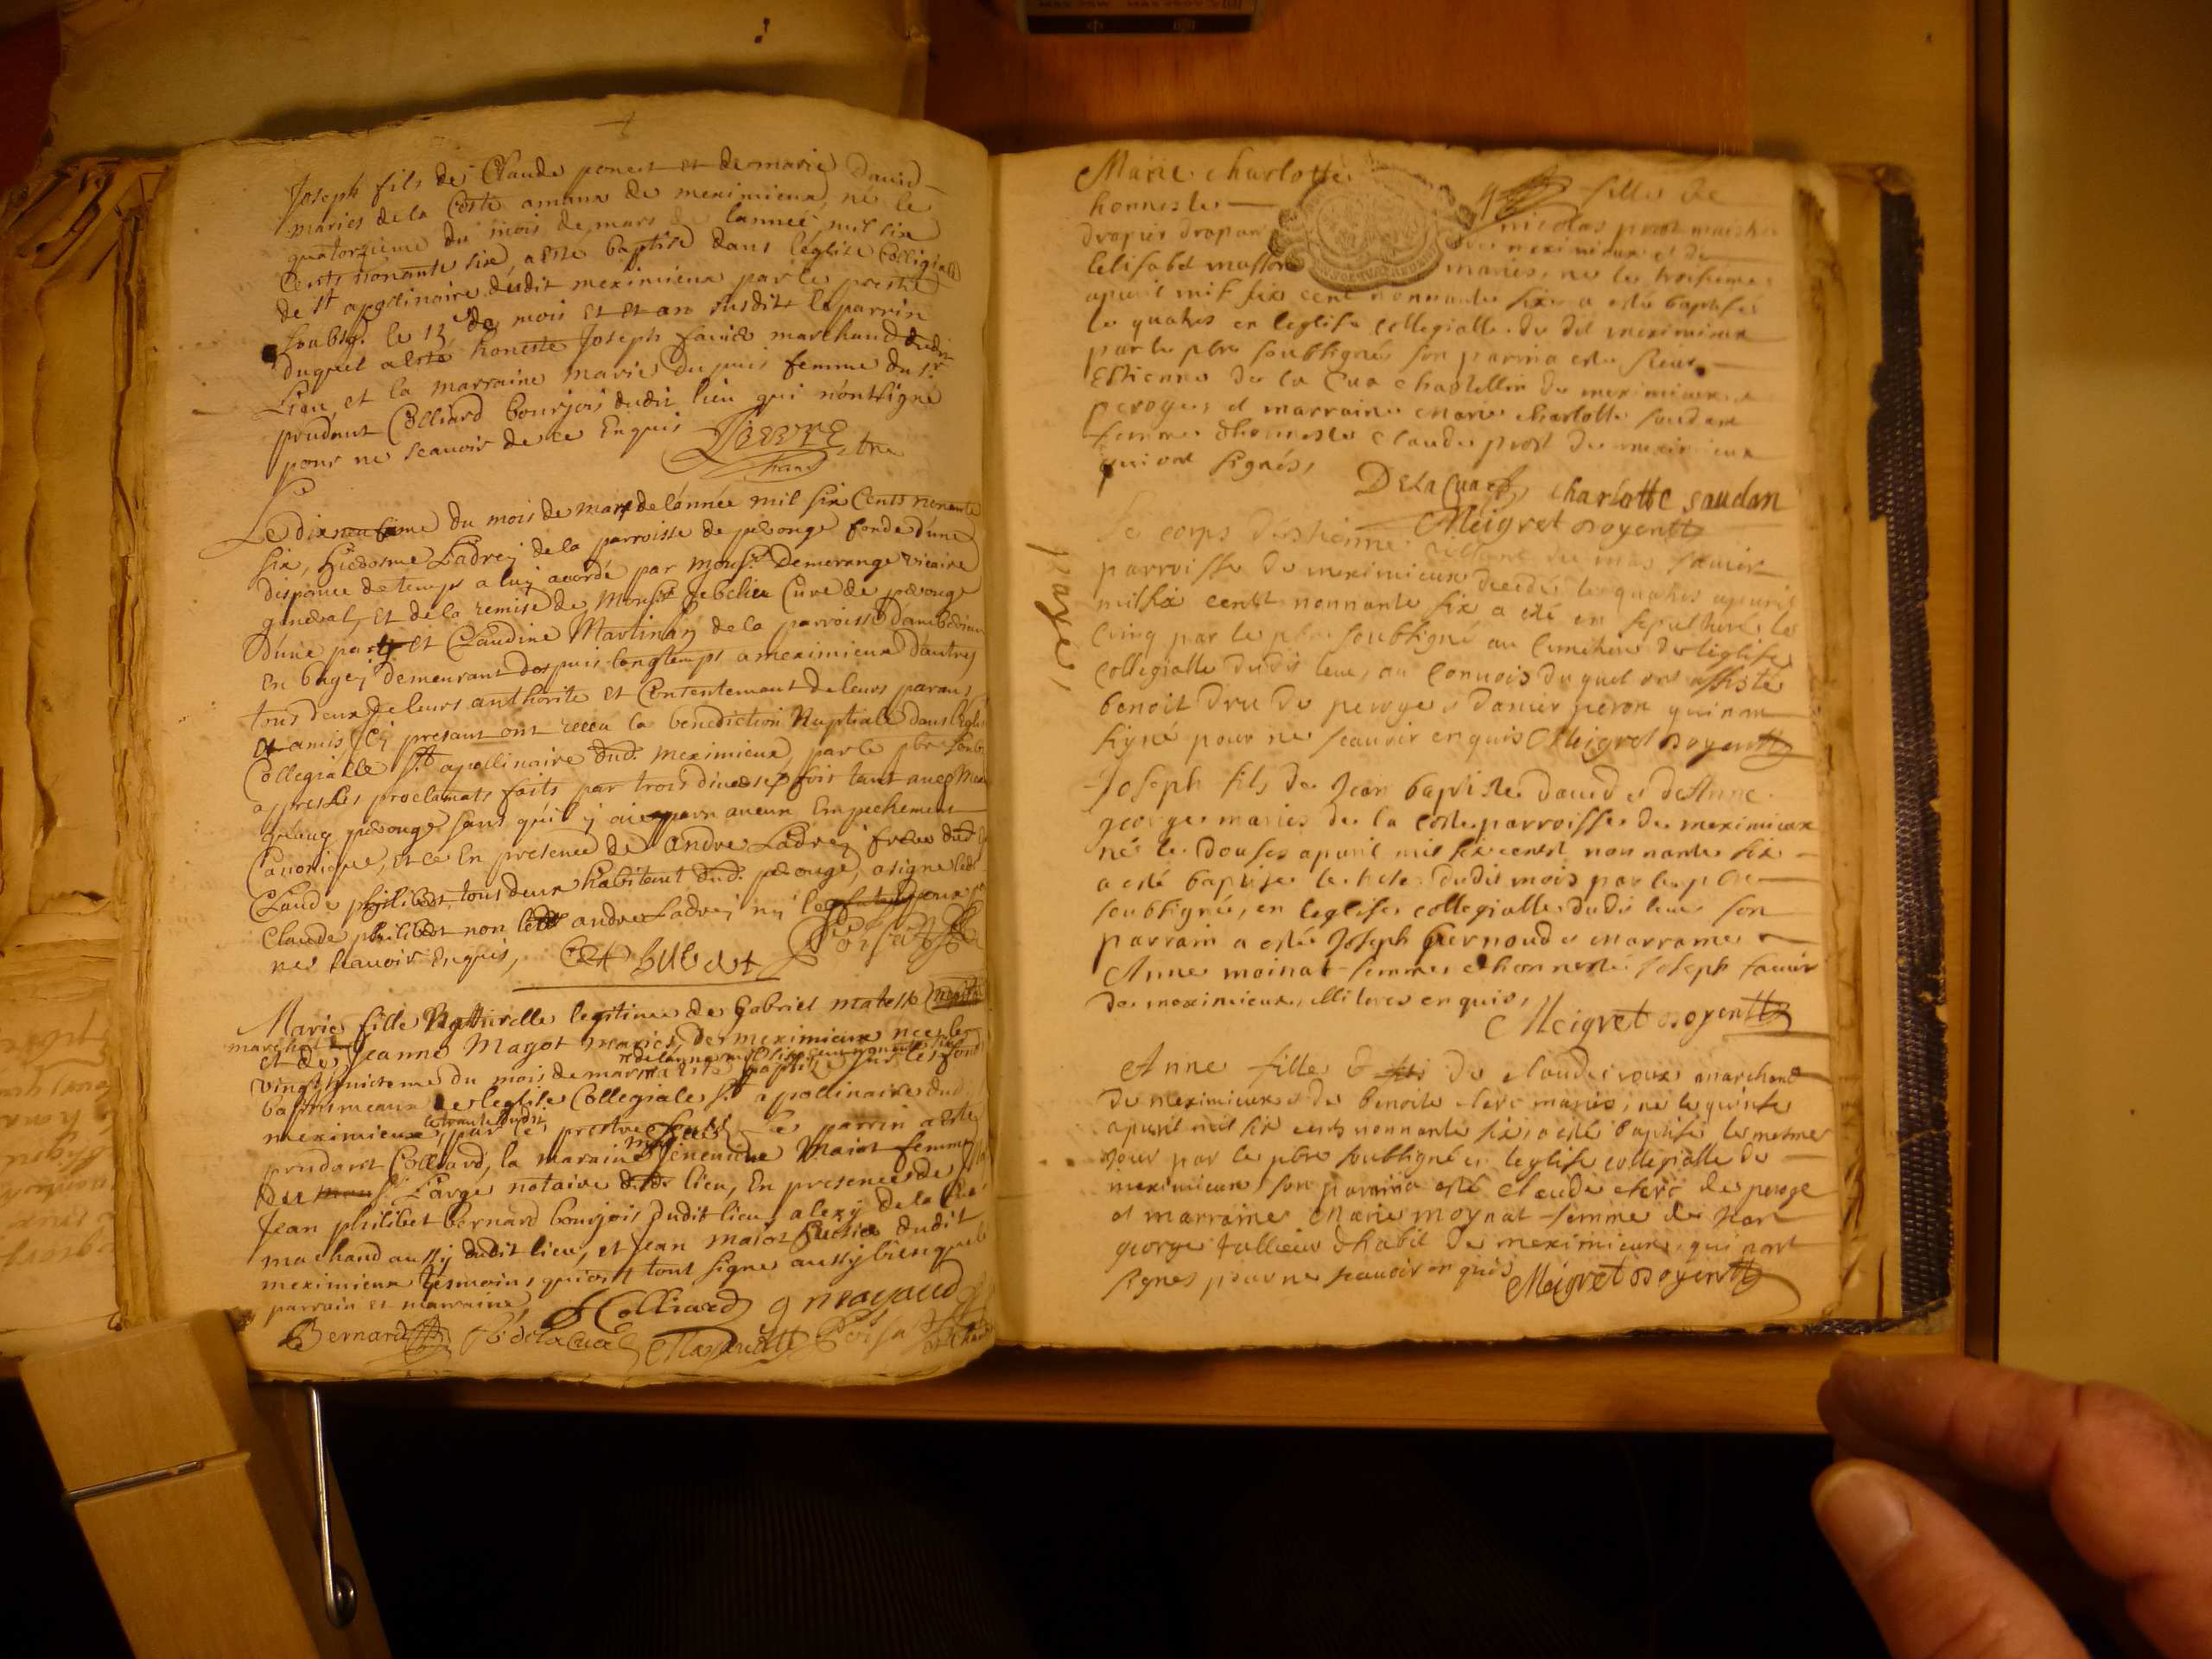 Joseph fils de Claude poncet et de marie David
mariés de la Coste amana de meximieux, né le
quatorzieme du mois de mars de lannée mil six
Cents nonante six, a esté baptisé dans leglise Collegialle
de St apolinaire dudit meximieux par le prestre
soubsig. le 15 des mois et an susdit le parrin
duquel a esté honeste Joseph favier marchand dudit
Lieu, et la marraine marie Dupuis femme du Sr
prudent Colliard bourjois dudit lieu qui n'ont signé
pour ne scavoir de ce Enquis
Le dixneufième du mois de mars de l'année mil six Cents nonante
six, hierosme Ladrej de la parroisse de perouge fonde d'une
dispence de temps a luy acordé par Monsr Demerange vicaire
general, et de la remise de Monsr Curé de perouge
d'une part et Claudine Martinay de la parroisse
En bugej demeurant despuis longtemps a meximieux d'autre
tous deux de leurs authorité et Consentement de leurs parans
et amis jcy presant ont receu la benediction Nuptiale dans
Collegialle St apollinaire dud. meximieux, par le pbre
appres les proclamats faits par trois diverses fois tant aud Mex
quauq perouge sans qu'il y aie apparu aucun Empechement
Canonique, et ce En presence de Andre Ladrej frere dud
Claude philibert tous deux habitant dud. perouge, a signe led
Claude philibert non led andre Ladrej ny
ne scavoir Enquis,
Marie fille Naturelle legitime de Gabriel
marchand
et de Jeanne Magot mariés de meximieux née le
vingt huictieme du mois de mars a esté baptisé sur les fonds
baptismeaux de leglise Collegiale St apollinaire dud
meximieux, par le prestre soubs le parrin a esté
prudent Colliard, la maraine Maiot femme
du Sr Large notaire dud lieu, En presence de
Jean philibet bernard bourjois dudit lieu, alexy de la Cua
marchand aussy dudit lieu, et Jean maiot dudit
meximieux tesmoins qui ont tous signé aussy bien que le
parrain et marraine
Colliard
Bernard De la Cua
Marie charlotte fille de
honneste nicolas prost maistre
drapier drapan de meximieux et de
lelisabet masson mariés, né le troisiemes
apuril mil six cent nonnante six a esté baptisés
le quatres en leglise collegialle du dit meximieux
par le pbre soubsigné son parrin a este sieur
Estienne de la Cua chastellin de meximieux
peroges et marraine marie charlotte soudan
femme dhonneste claude prost de meximieux
qui ont signés,
DelaCua charlotte saudan
Meigret doyen
Le corps destienne du mas favier
parroisse de meximieux decedé le quatres apuril
mil six cent nonnante six a esté en sepulture le
cinq par le pbre soubsigné au cimetiere de leglise
collegialle dudit lieu, au convois duquel ont assisté
benoit dru de peroge et danier peron qui n'on
signé pour ne scauoir enquis Meigret doyen
payé
Joseph fils de Jean baptiste david et de Anne
george mariés de la coste parroisse de meximieux
né le douse apuril mil six cent nonnante six
a esté baptisé le dudit mois par le pbre
soubsigné, en leglise collegialle dudit lieu son
parrain a esté Joseph pernoud et marraine
Anne moinat femme dhonneste Joseph favier
de meximieux, illiteres enquis,
Meigret doyen
Anne fille de claude roux marchand
de meximieux et de benoite clerc mariés, né le quinse
apuril mil six cents nonnante six, a esté baptisé le mesme
jour par le pbre soubsigné en leglise collegialle de
meximieux son parrain a esté claude clerc de peroge
et marraine marie moynat femme de Jean
george tallieur dhabit de meximieux, qui n'ont
signes pour ne scauoir enquis Meigret doyen